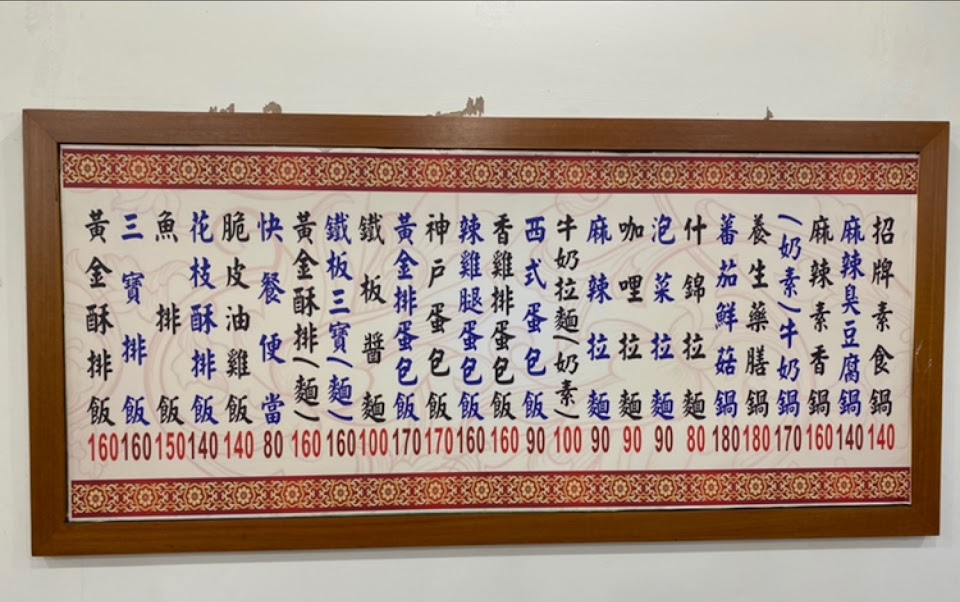 招牌素食鍋 140
麻辣臭豆腐鍋 140
麻辣素香鍋 160
(奶素)牛奶鍋 170
養生藥膳鍋 180
蕃茄鮮菇鍋 180
什錦拉麵 80
泡菜拉麵 90
咖哩拉麵 90
麻辣拉麵 90
牛奶拉麵(奶素) 100
西式蛋包飯 90
香雞排蛋包飯 160
辣雞腿蛋包飯 160
神戶蛋包飯 170
黃金排蛋包飯 170
鐵板醬麵 100
鐵板三寶(麵) 160
黃金酥排(麵) 160
快餐便當 80
脆皮油雞飯 140
花枝酥排飯 140
魚排飯 150
三寶排飯 160
黃金酥排飯 160